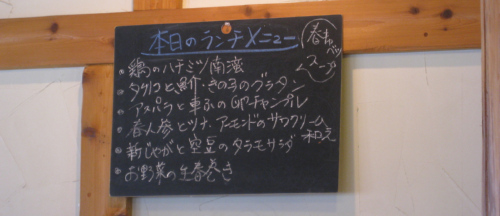 本日のランチメニュー
春キャベツ
スープ
鶏のハチミツ南蛮
タケノコと魚介・きのこのグラタン
アスパラと車ふの卵チャンプル
春人参とツナ、アーモンドのサワクリーム
和え
新じゃがと空豆のタラモサラダ
お野菜の生春巻き